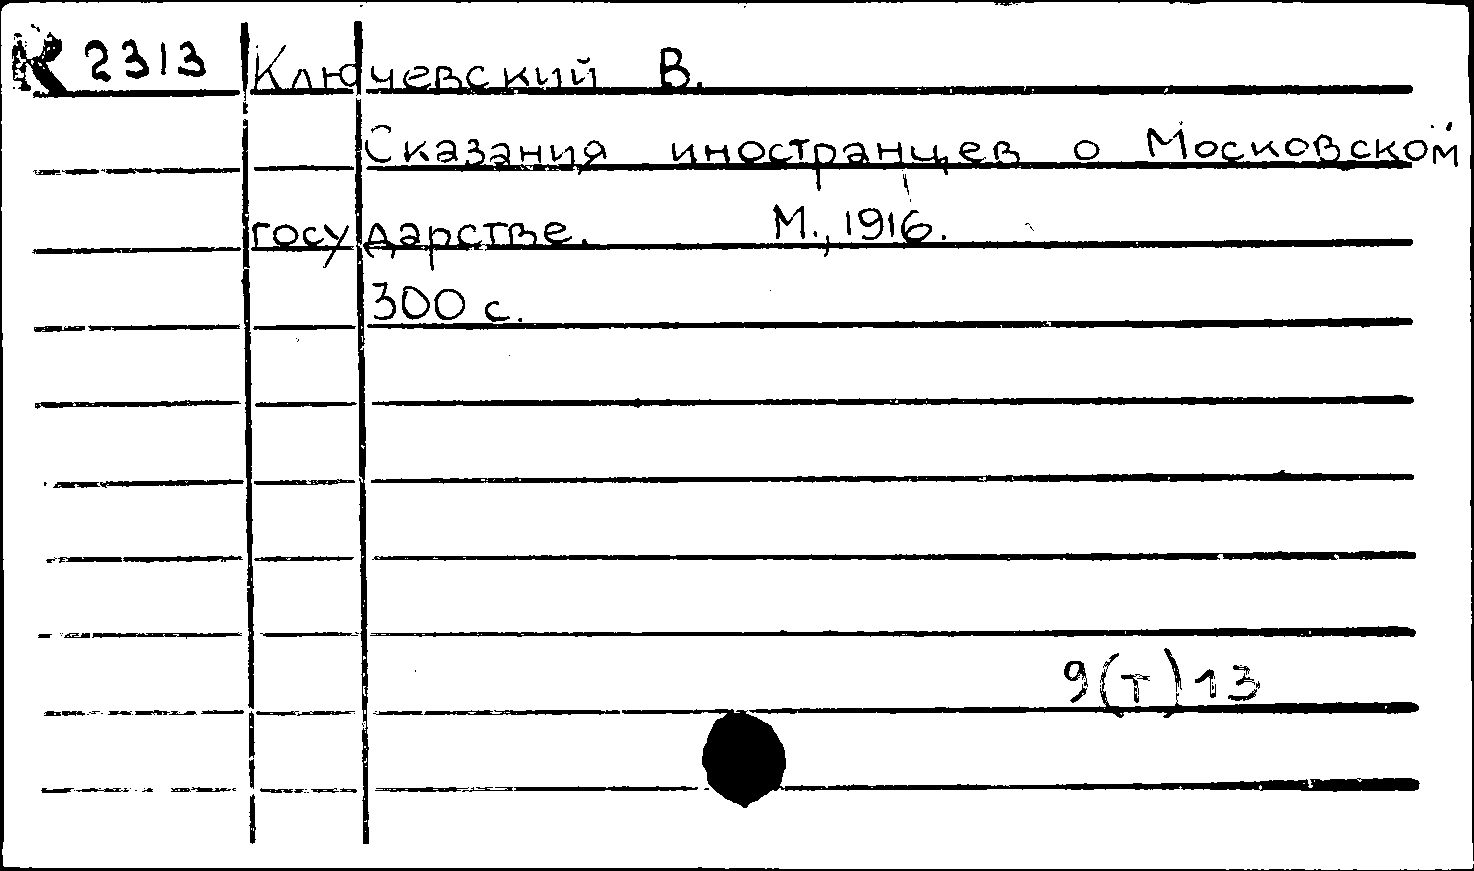 К 2313 Ключевский В.
Сказания иностранцев о Московском
государстве. М., 1916.
300 с.
9(Т)13